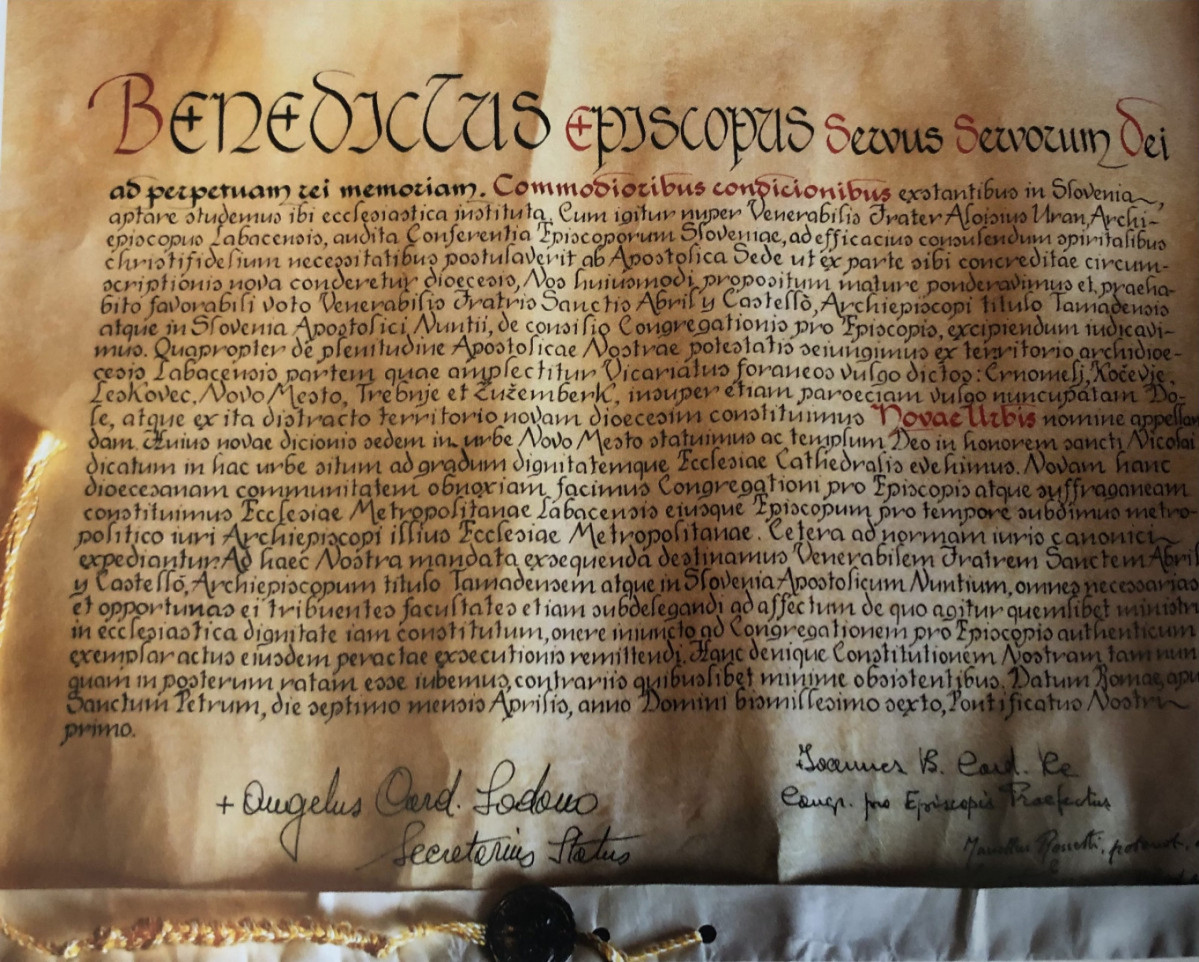 BENEDICTUS EPISCOPUS Servus Servorum Dei
ad perpetuam rei memoriam. Commodioribus condicionibus exstantibus in Slovenia,
aptare studemus ibi ecclesiastica instituta. Cum igitur nuper Venerabilis Frater Aloisius Uran, Archi-
episcopus Labacensis, audita Conferentia Episcoporum Sloveniae, ad efficacius consulendum spiritalibus
christifidelium necessitatibus postulaverit ab Apostolica Sede ut ex parte sibi concreditae circum-
scriptionis nova conderetur dioecesis, Nos huiusmodi propositum mature ponderavimus et, praeha-
bito favorabili voto Venerabilis Fratris Sanctis Abril y Castelló, Archiepiscopi titulo Tamadensis
atque in Slovenia Apostolici Nuntii, de consilio Congregationis pro Episcopis, excipiendum iudicavi-
mus. Quapropter de plenitudine Apostolicae Nostrae potestatis seiungimus ex territorio archidioe-
cesis Labacensis partem quae amplectitur Vicariatus foraneos vulgo dictos: Črnomelj, Kočevje,
Leskovec, Novo Mesto, Trebnje et Žužemberk, insuper etiam paroeciam vulgo nuncupatam Do-
le, atque ex ita distracto territorio novam dioecesim constituimus Novae Urbis nomine appellan
dam. Huius novae dicionis sedem in urbe Novo Mesto statuimus ac templum Deo in honorem sancti Nicolai
dicatum in hac urbe situm ad gradum dignitatemque Ecclesiae Cathedralis evehimus. Novam hanc
dioecesanam communitatem obnoxiam facimus Congregationi pro Episcopis atque suffraganeam
constituimus Ecclesiae Metropolitanae Labacensis eiusque Episcopum pro tempore subdimus metro-
politico iuri Archiepiscopi illius Ecclesiae Metropolitanae. Cetera ad normam iuris canonici
expediantur. Ad haec Nostra mandata exsequenda destinamus Venerabilem Fratrem Sanctem Abril
y Castelló, Archiepiscopum titulo Tamadensem atque in Slovenia Apostolicum Nuntium, omnes necessarias
et opportunas ei tribuentes facultates etiam subdelegandi ad affectum de quo agitur quemlibet ministr
in ecclesiastica dignitate iam constitutum, onere iniuncto ad Congregationem pro Episcopis authenticum
exemplar actus eiusdem peractae exsecutionis remittendi. Hanc denique Constitutionem Nostram tam nun
quam in posterum ratam esse iubemus, contrariis quibuslibet minime obsistentibus. Datum Romae, apu
Sanctum Petrum, die septimo mensis Aprilis, anno Domini bismillesimo sexto, Pontificatus Nostri
primo.
+ Angelus Card. Sodano
Secretarius Status
Ioannes B. Card. Re
Congr. pro Episcopis Praefectus